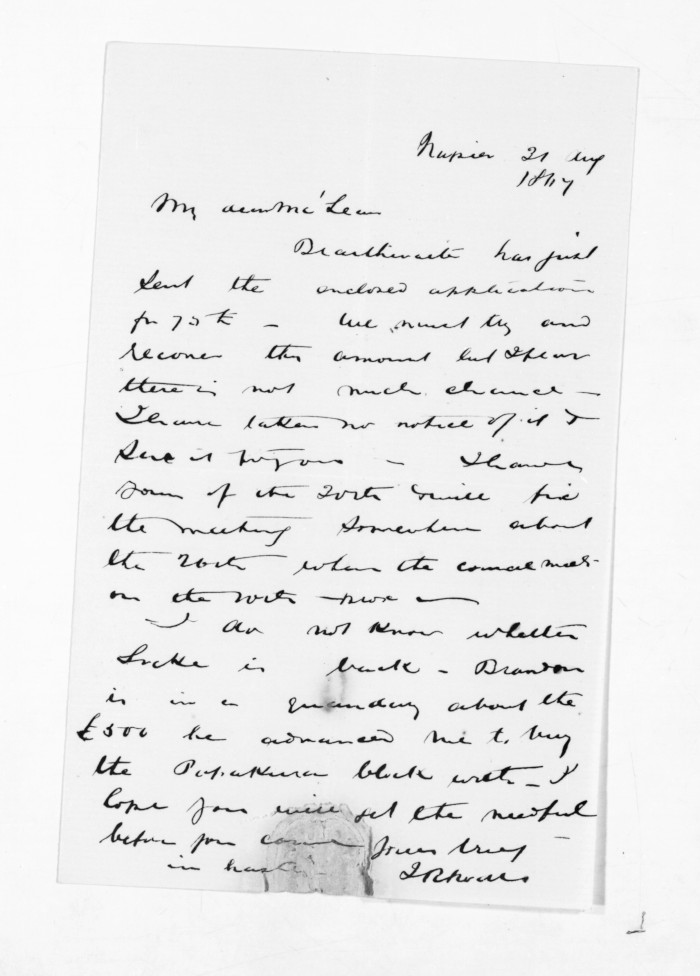 Napier 21 Aug
1867
My dear McLean
Braithwaite has just
sent the enclosed application
for 75th - We must try and
recover this amount but I fear
there is not much chance -
I have taken no notice of it &
send it to you - I have
yours of the 20th & will fix
the meeting somewhere about
the 26th when the council meets
on the 20th
I do not know whether
Locke is back - Brandon
is in a quandary about the
£500 he advanced me to buy
the Papakura block with - I
hope you will get the needful
before you come Yours truly
in haste
1